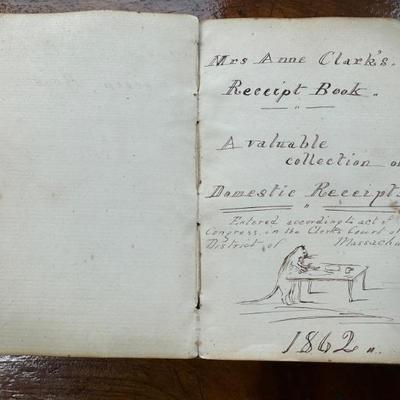 Mrs Anne Clark's
Receipt Book.
A valuable
collection o
Domestic Receipts
Entered according to act of
Congress, in the Clerk's Court of
District of Massachu
1862